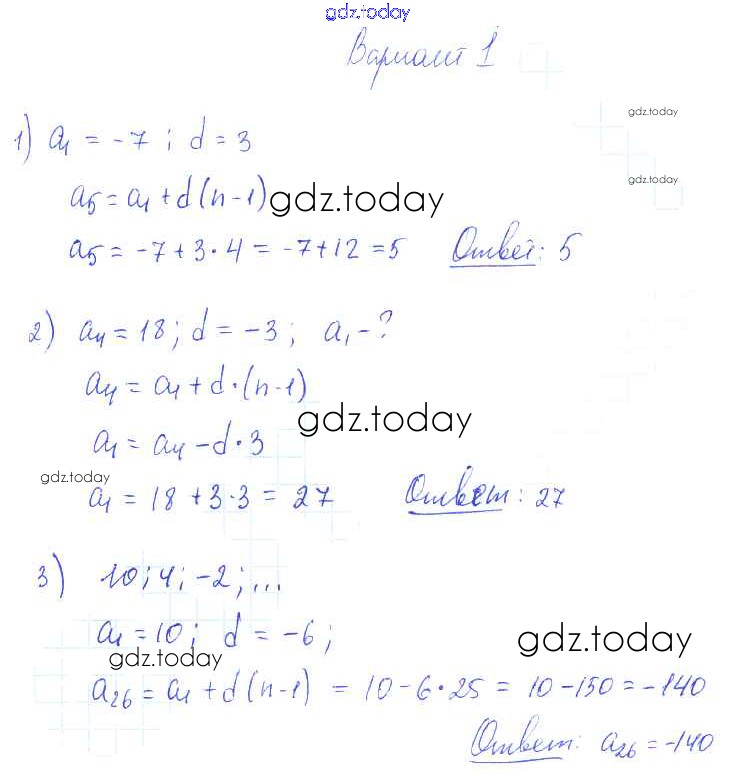 gdz.today
Вариант 1
gdz.today
1) a₁ = -7 ; d = 3
gdz.today
a₅ = a₁ + d(n-1) gdz.today
a₅ = -7 + 3·4 = -7+12 = 5 Ответ: 5
2) a₄ = 18; d = -3; a₁ - ?
a₄ = a₁ + d·(n-1)
gdz.today
a₁ = a₄ - d·3
gdz.today
a₁ = 18 + 3·3 = 27 Ответ: 27
3) 10; 4; -2; ...
a₁ = 10; d = -6;
gdz.today
gdz.today
a₂₆ = a₁ + d(n-1) = 10 - 6·25 = 10 - 150 = -140
Ответ: a₂₆ = -140